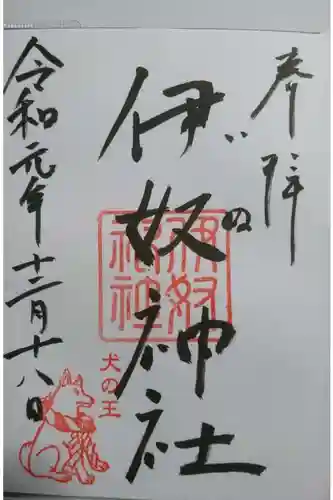 奉拝
伊奴神社
いぬ
伊奴神社
犬の王
令和元年十二月十八日